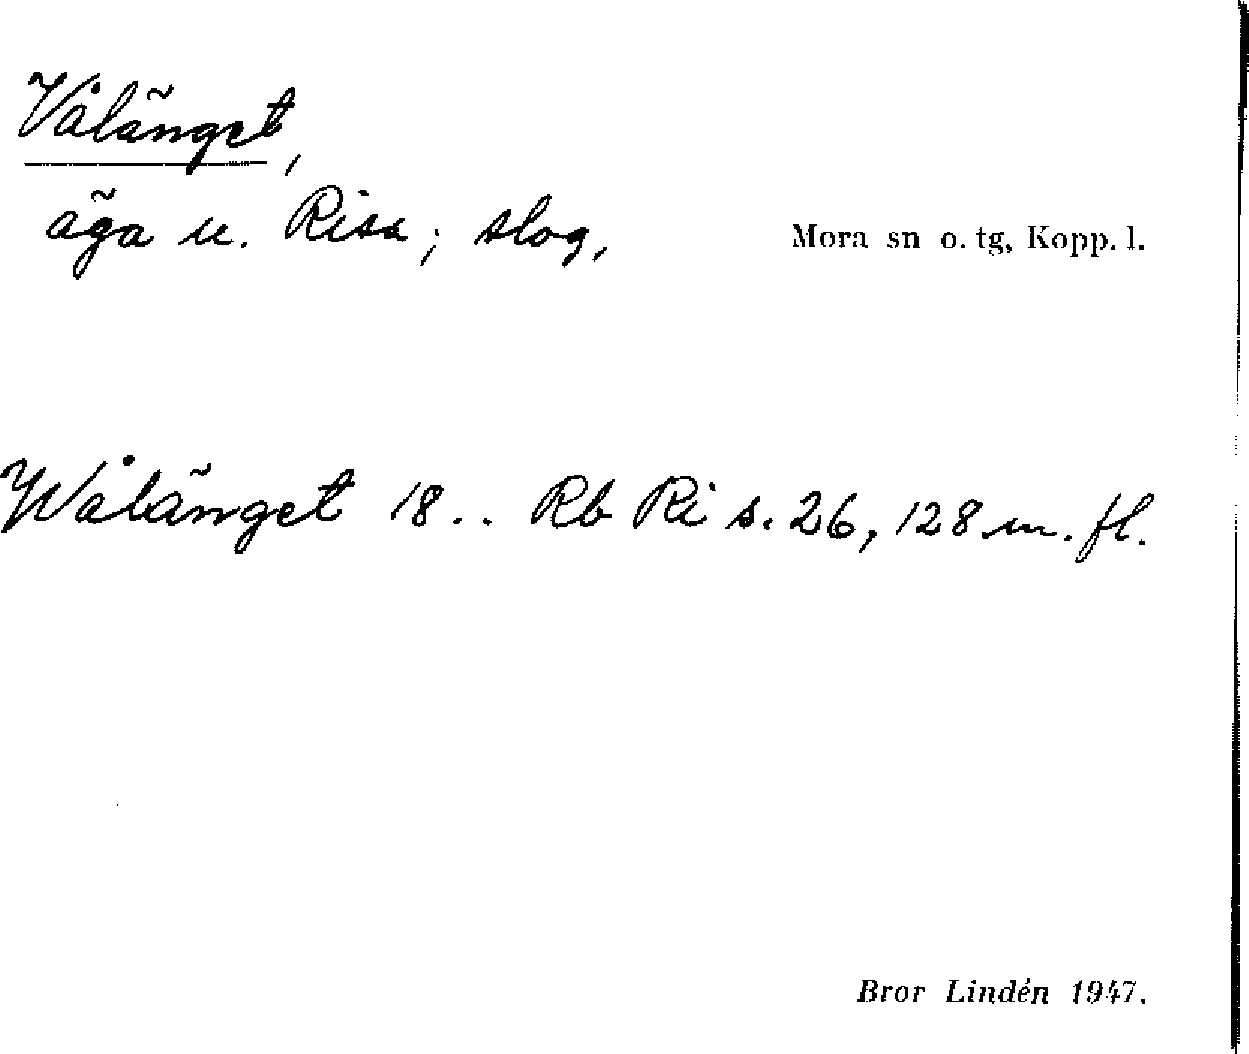 Vålänget,
äga u. Risa; slog,
Mora sn o. tg, Kopp. l.
Wålänget 18.. Rb Ri s. 26, 128 m. fl.
Bror Lindén 1947.